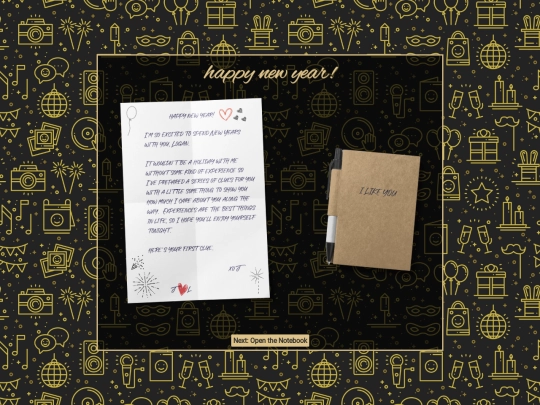 happy new year!
HAPPY NEW YEAR!
I'M SO EXCITED TO SPEND NEW YEARS
WITH YOU, LOGAN.
IT WOULDN'T BE A HOLIDAY WITH ME
WITHOUT SOME KIND OF EXPERIENCE SO
I'VE PREPARED A SERIES OF CLUES FOR YOU
WITH A LITTLE SOMETHING TO SHOW YOU
HOW MUCH I CARE ABOUT YOU ALONG THE
WAY. EXPERIENCES ARE THE BEST THINGS
IN LIFE, SO I HOPE YOU'LL ENJOY YOURSELF
TONIGHT.
HERE'S YOUR FIRST CLUE.
XO J
I LIKE YOU
Next: Open the Notebook